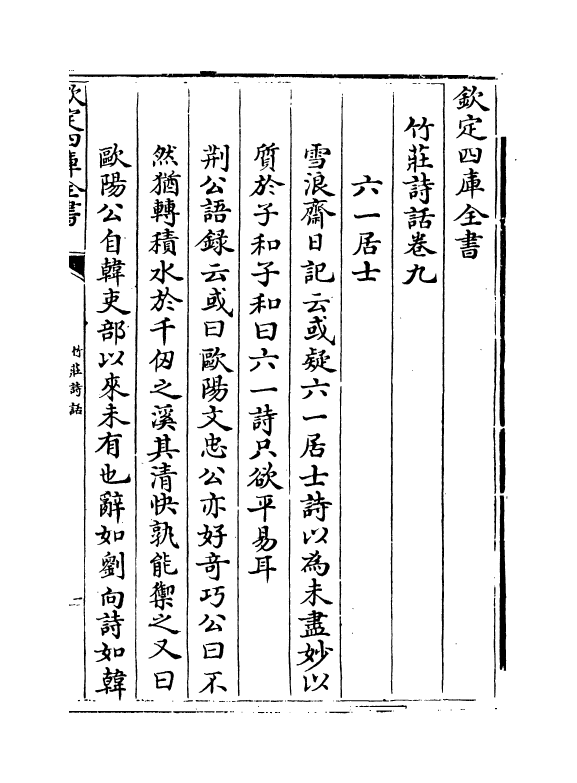 欽定四庫全書
竹莊詩話卷九
六一居士
雪浪齋日記云或疑六一居士詩以為未盡妙以
質於子和子和曰六一詩只欲平易耳
荆公語録云或曰歐陽文忠公亦好竒巧公曰不
然猶轉積水於千仞之溪其清快孰能禦之又曰
歐陽公自韓吏部以來未有也辭如劉向詩如韓
欽定四庫全書
竹莊詩話
一